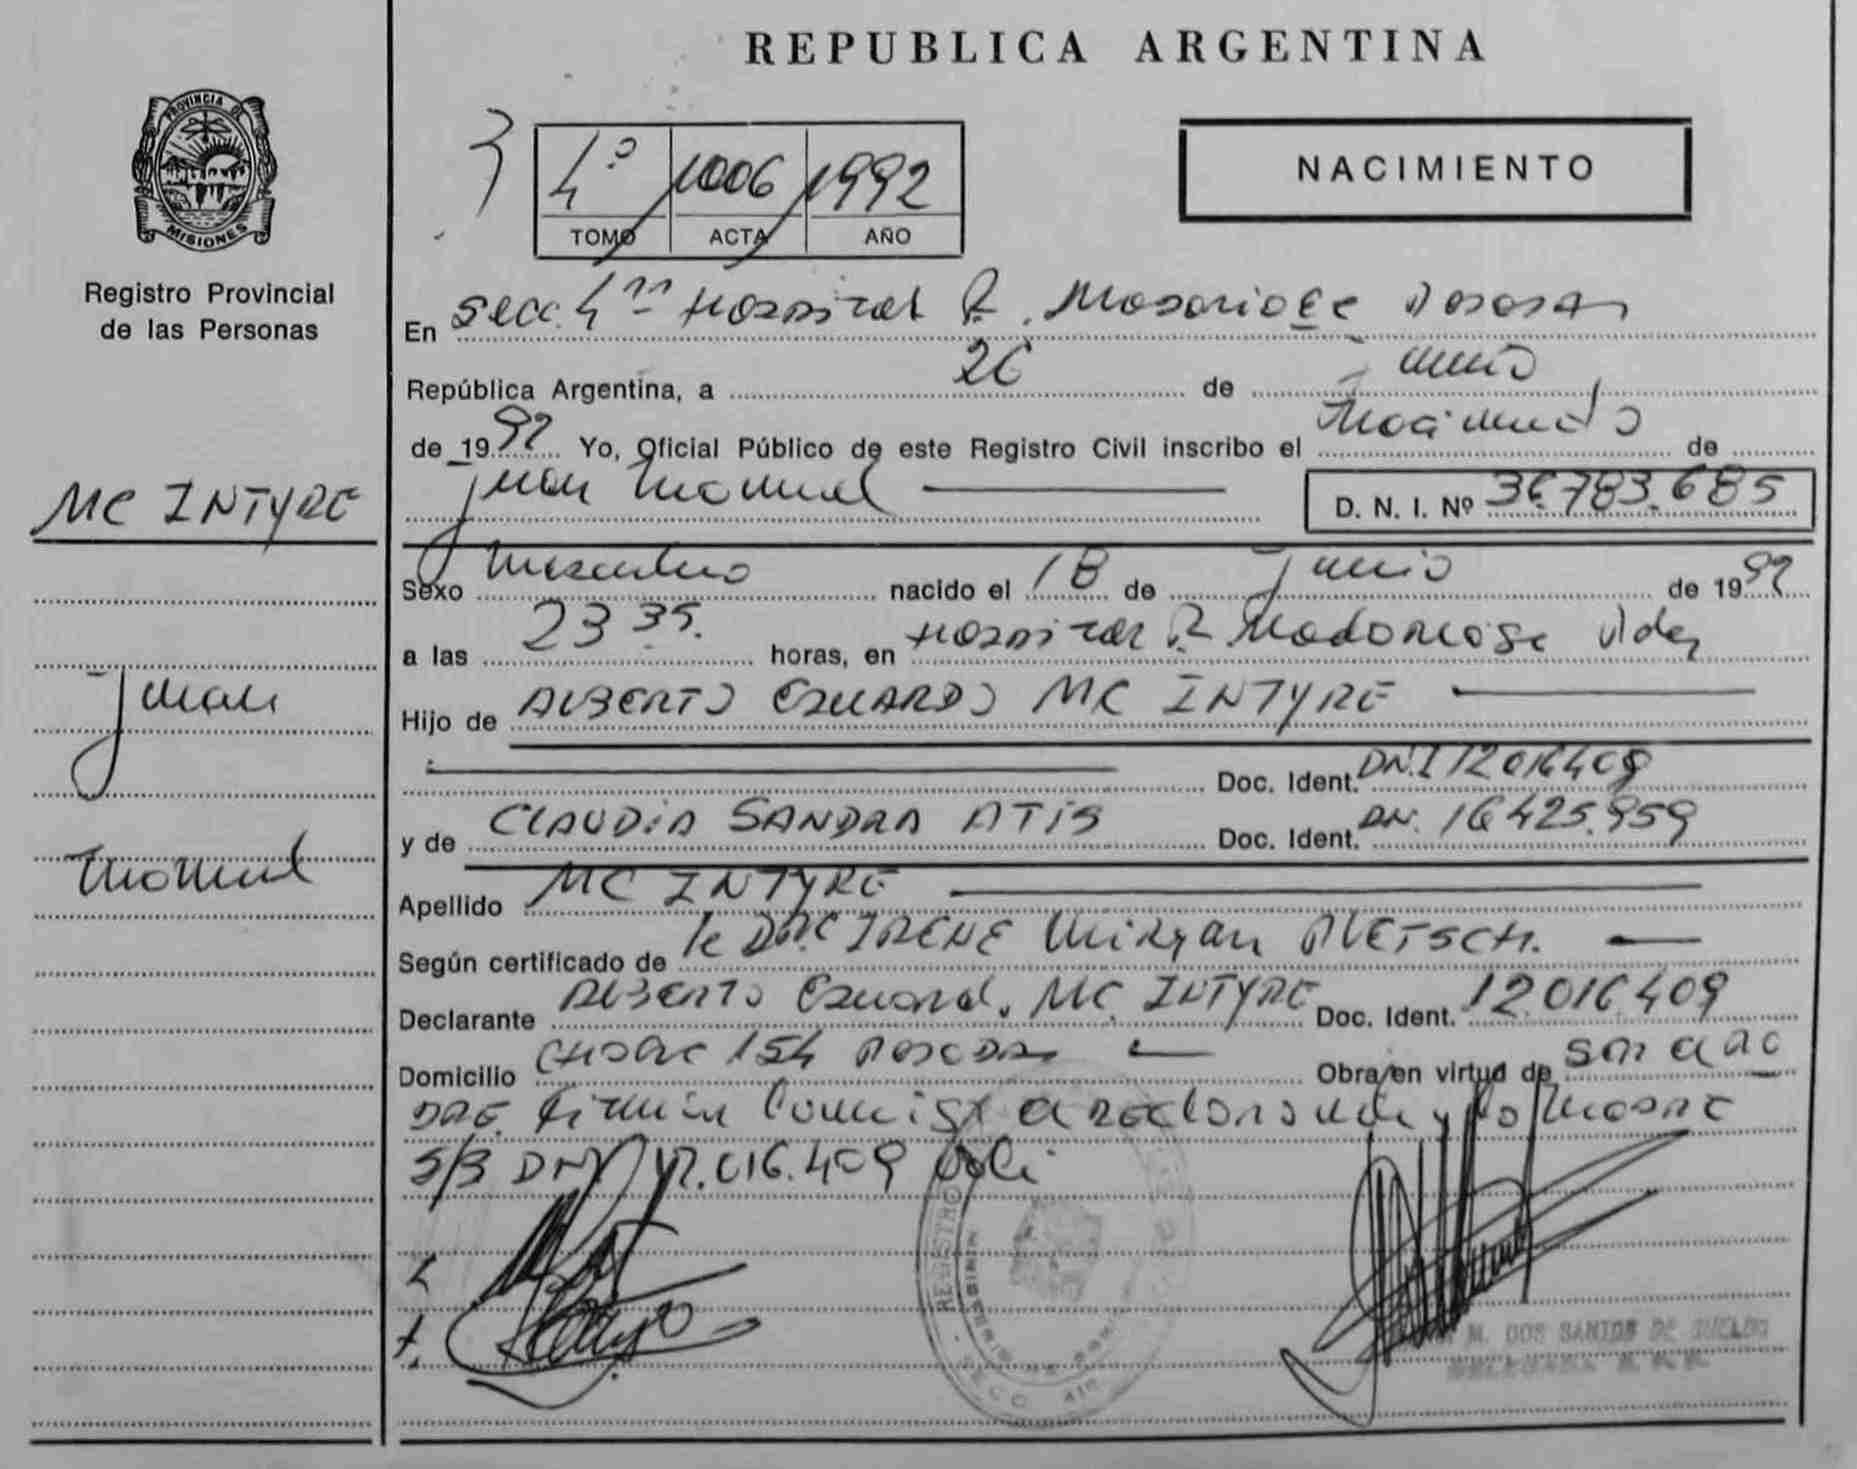 REPUBLICA ARGENTINA
PROVINCIA DE
MISIONES
Registro Provincial
de las Personas
4º 1006 1992
TOMO ACTA AÑO
NACIMIENTO
En Secc. 4ª Hospital R.
República Argentina, a 26 de Junio
de 1992 Yo, Oficial Público de este Registro Civil inscribo el Nacimiento de
Juan Manuel D. N. I. Nº 36.783.685
MC INTYRE
Sexo Masculino nacido el 18 de Junio de 1992
a las 23 35. horas, en Hospital R.
Juan
Hijo de ALBERTO EDUARDO MC INTYRE
Doc. Ident. DNI 12016409
y de CLAUDIA SANDRA ATIS Doc. Ident. DN. 16425.959
Manuel
Apellido MC INTYRE
Según certificado de IRENE Miryan
Declarante ALBERTO Eduardo MC. INTYRE Doc. Ident. 12.016.409
Domicilio 154 Posadas Obra en virtud de
S/B DNI 12.016.409
REGISTRO
M. DOS SANTOS DE